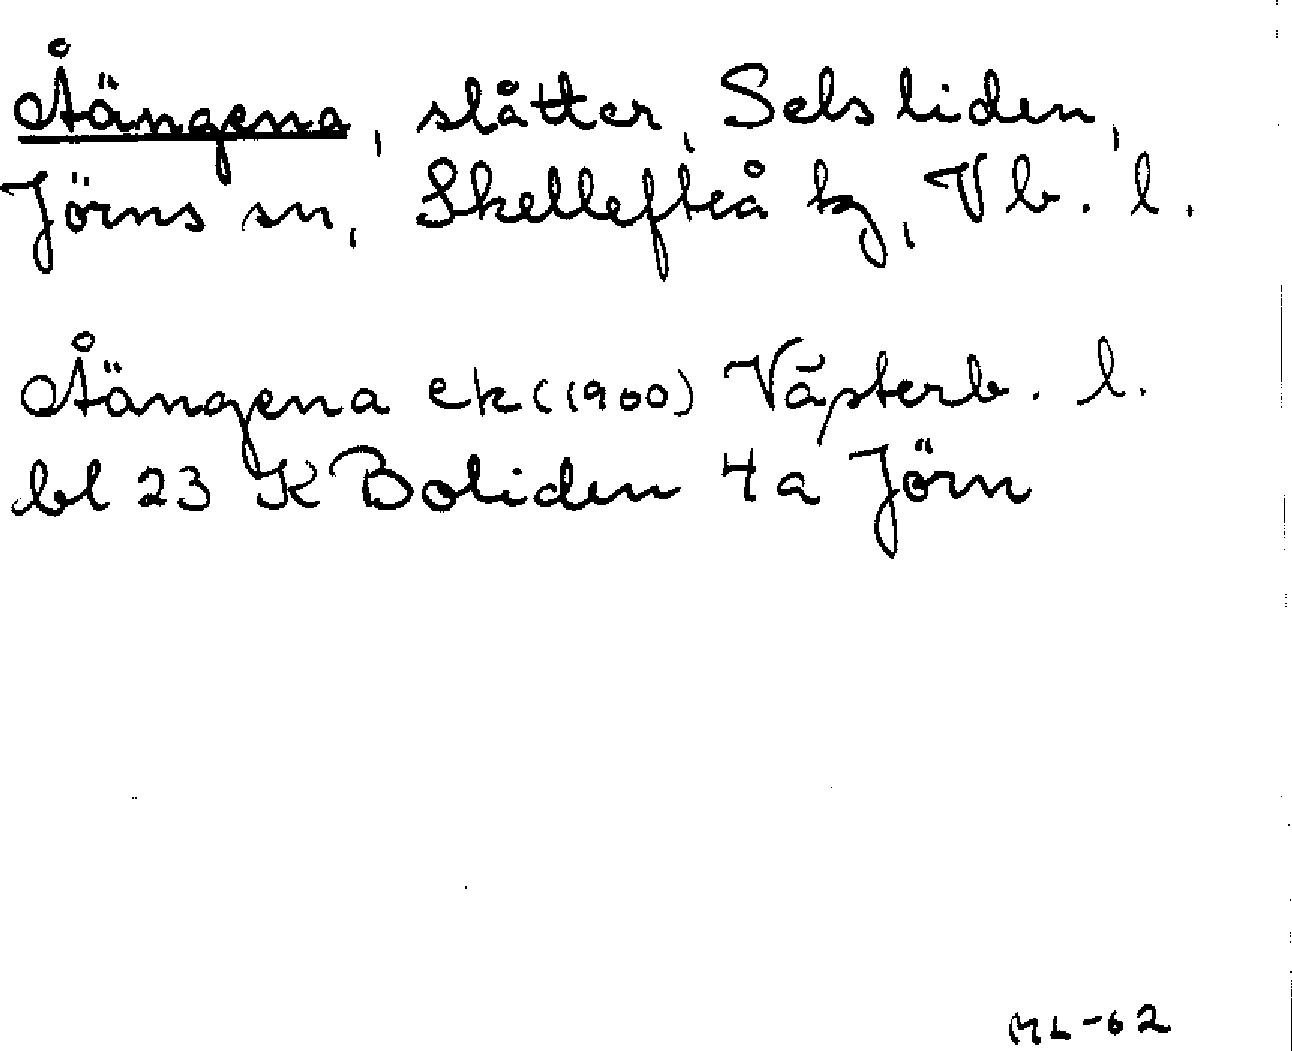 Åängena, slåtter, Selsliden,
Jörns sn, Skellefteå kg, Vb. l.
Åängena ek (1960) Västerb. l.
bl 23 K Boliden 4a Jörn
ML-62